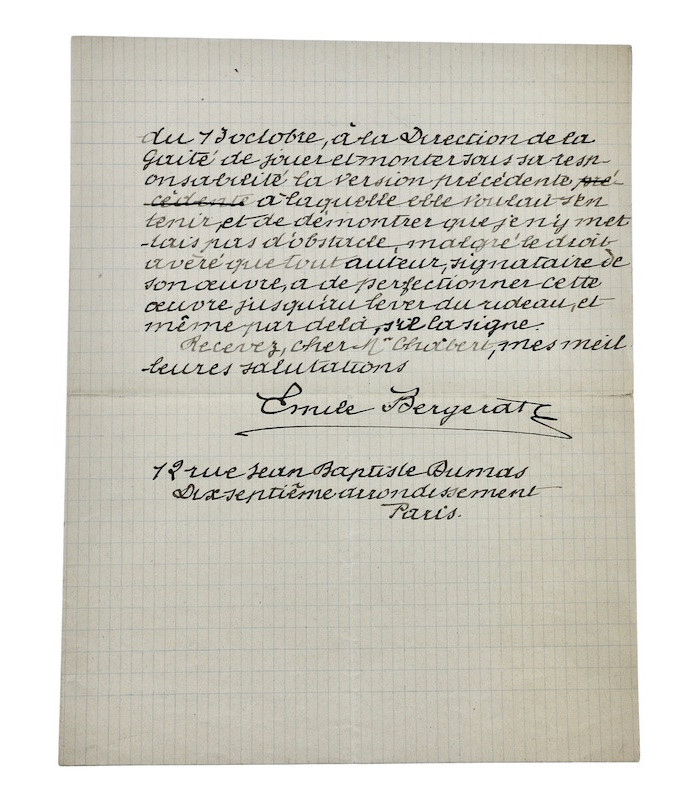 du 13 octobre, à la Direction de la
Gaité de jouer et monter sous sa resp-
onsabilité la version précédente, pré-
cédente à laquelle elle voulait s'en
tenir, et de démontrer que je n'y met
-tais pas d'obstacle, malgré le droit
avéré que tout auteur, signataire de
son œuvre, a de perfectionner cette
œuvre jusqu'au lever du rideau, et
même par delà, s'il la signe.
Recevez, cher Mr Chabert, mes meil
-leures salutations
Emile Bergerat
12 rue Jean Baptiste Dumas
Dixseptième arrondissement
Paris.